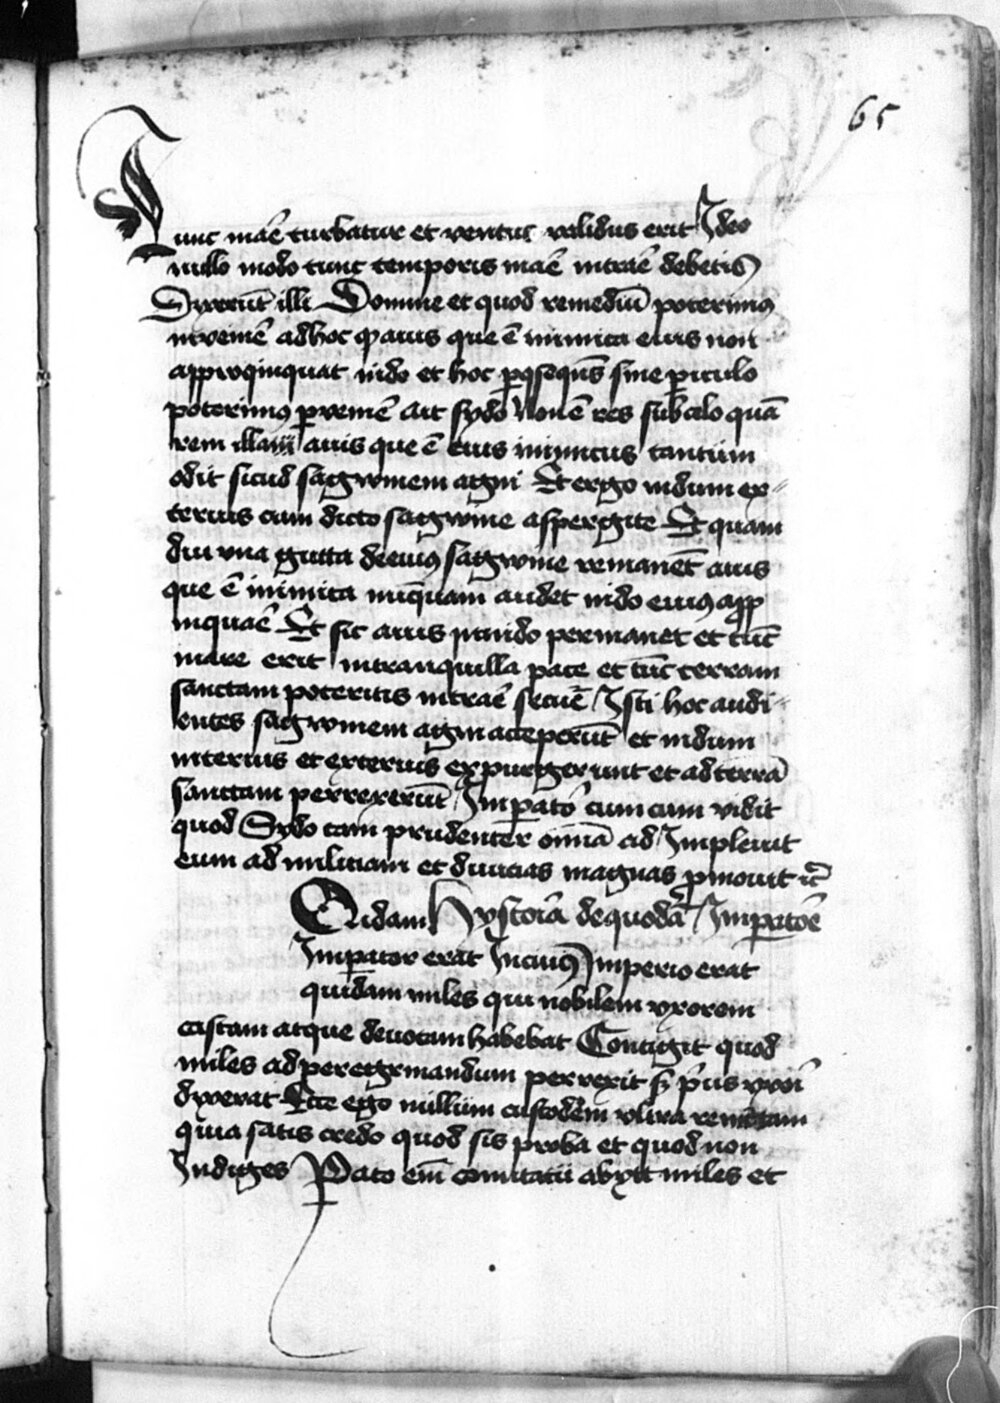 65
Tunc mãe turbatur et ventus validus erit Ideo
nullo modo tunc temporis mãe intrãe debetis
Dixerũt illi Domine et quod remediũ poterimꝯ
invenĩe adhoc ꝙ auis que ẽ inimica eius non
appropinquat nido et hoc ꝑ ꝯsequẽs sine ꝑiculo
poterimꝯ ꝑvenĩe Ait sydo Non ẽ res sub celo quã
rem illam auis que ẽ eius inimicus tantum
odit sicud sagwinem agni Et ergo nidum ex
terius cum dicto sagwine aspergite Et quam
diu vna gutta de eiuꝯ sagwine remanet auis
que ẽ inimica nũquam audet nido eiuꝯ app
inquãe Et sic auis in nido permanet et tũc
mare erit in tranquilla pace et tũc terram
sanctam poteritis intrãe secũe Isti hoc audi
entes sagwinem agni acceperũt et nidum
interius et exterius expurgerunt et ad terrã
sanctam perrexerũt Imꝑator cum eum vidit
quod Sydo tam prudenter oĩnia id Impleuit
eum ad militiam et diuicias magnas ꝓmouit ꝛc̃
Quidam hystoria de quodã Imꝑatoẽ
Imꝑator erat In cuiuꝯ Imperio erat
quidam miles qui nobilem vxorem
castam atque deuotam habebat Contigit quod
miles ad peregrinandum perrexit sꝫ p̃us vxoĩ
dixerat Ecce ego nullum custodem ultra
quia satis credo quod sis proba et quod non
Indiges Pato eñ comitatu abyit miles et